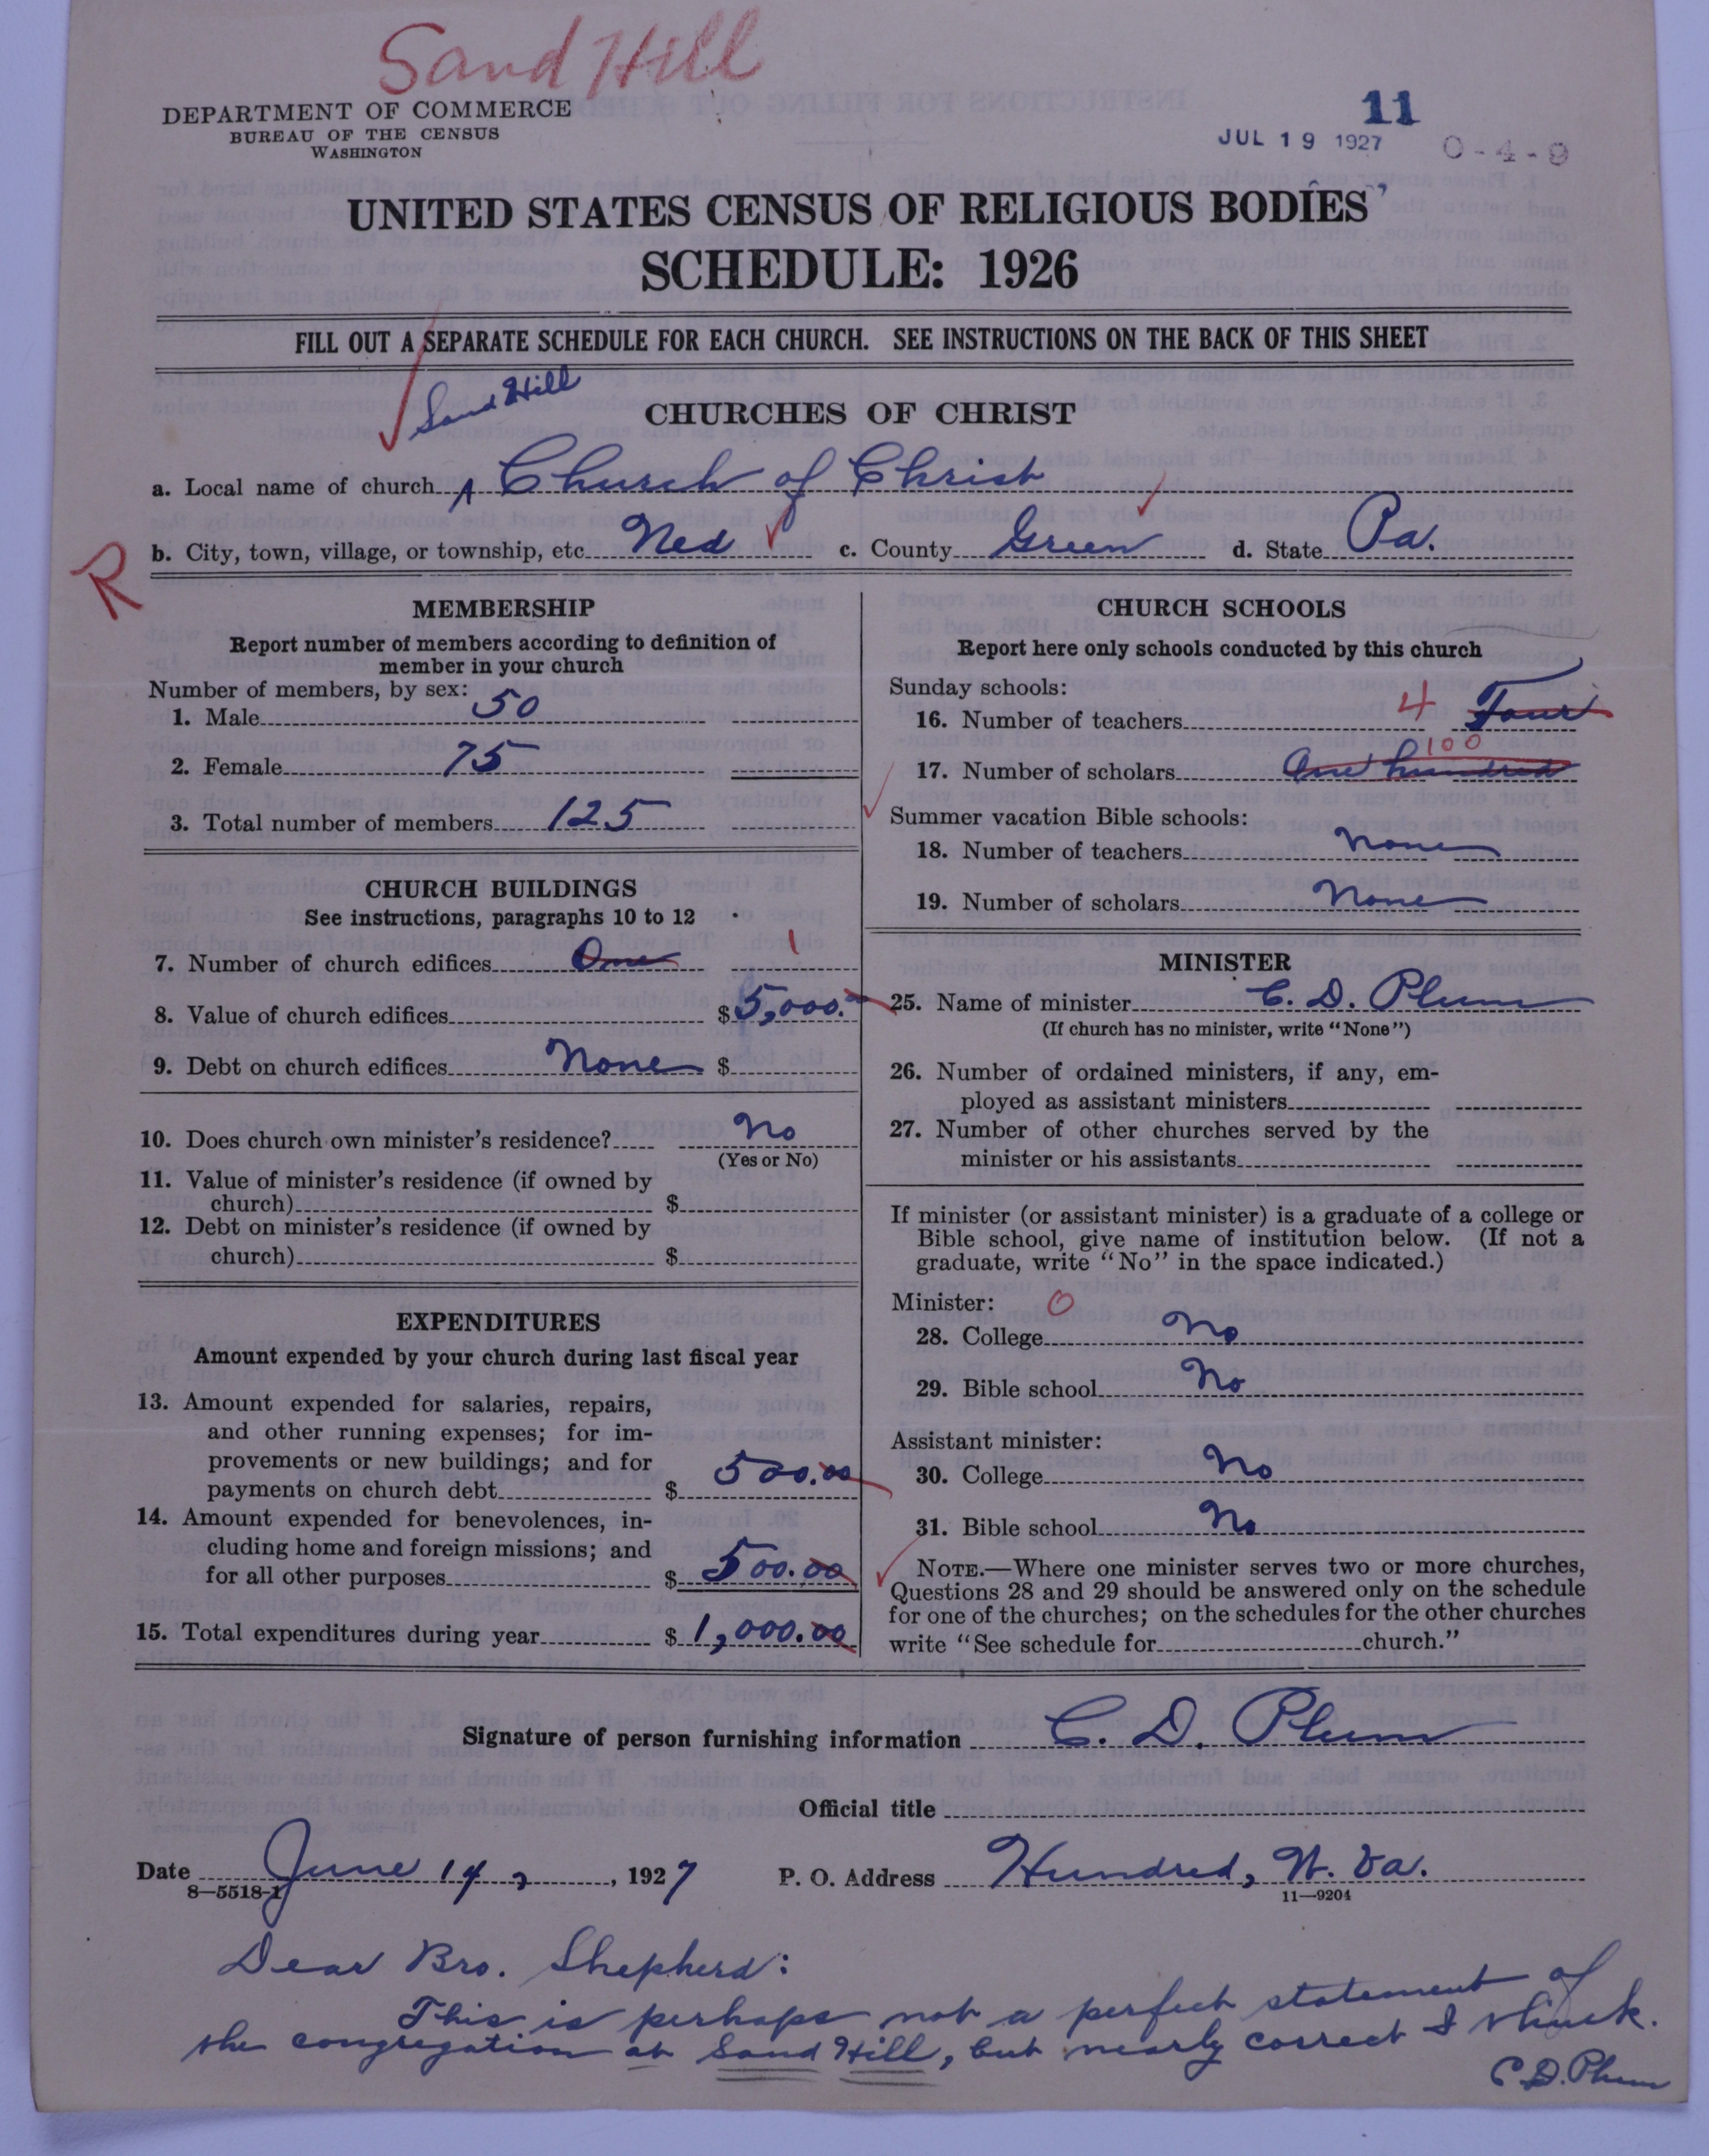 Sand Hill
DEPARTMENT OF COMMERCE
BUREAU OF THE CENSUS
WASHINGTON
11
JUL 19 1927
0-4-9
UNITED STATES CENSUS OF RELIGIOUS BODIES
SCHEDULE: 1926
FILL OUT A SEPARATE SCHEDULE FOR EACH CHURCH. SEE INSTRUCTIONS ON THE BACK OF THIS SHEET
Sand Hill
CHURCHES OF CHRIST
a. Local name of church Church of Christ
b. City, town, village, or township, etc. Ned c. County Green d. State Pa.
R
MEMBERSHIP
Report number of members according to definition of
member in your church
Number of members, by sex:
1. Male 50
2. Female 75
3. Total number of members 125
CHURCH BUILDINGS
See instructions, paragraphs 10 to 12
7. Number of church edifices One 1
8. Value of church edifices $ 5,000.
9. Debt on church edifices None $
10. Does church own minister's residence? No
(Yes or No)
11. Value of minister's residence (if owned by
church) $
12. Debt on minister's residence (if owned by
church) $
EXPENDITURES
Amount expended by your church during last fiscal year
13. Amount expended for salaries, repairs,
and other running expenses; for im-
provements or new buildings; and for
payments on church debt $ 500.00
14. Amount expended for benevolences, in-
cluding home and foreign missions; and
for all other purposes $ 500.00
15. Total expenditures during year $ 1,000.00
CHURCH SCHOOLS
Report here only schools conducted by this church
Sunday schools:
16. Number of teachers 4 Four
17. Number of scholars One hundred 100
Summer vacation Bible schools:
18. Number of teachers None
19. Number of scholars None
MINISTER
25. Name of minister C. D. Plum
(If church has no minister, write "None")
26. Number of ordained ministers, if any, em-
ployed as assistant ministers
27. Number of other churches served by the
minister or his assistants
If minister (or assistant minister) is a graduate of a college or
Bible school, give name of institution below. (If not a
graduate, write "No" in the space indicated.)
Minister: 0
28. College No
29. Bible school No
Assistant minister:
30. College No
31. Bible school No
NOTE.—Where one minister serves two or more churches,
Questions 28 and 29 should be answered only on the schedule
for one of the churches; on the schedules for the other churches
write "See schedule for church."
Signature of person furnishing information C. D. Plum
Official title
Date June 14, 1927 P. O. Address Hundred, W. Va.
8—5518-1 11—9204
Dear Bro. Shepherd:
This is perhaps not a perfect statement of
the congregation at Sand Hill, but nearly correct I think.
C. D. Plum